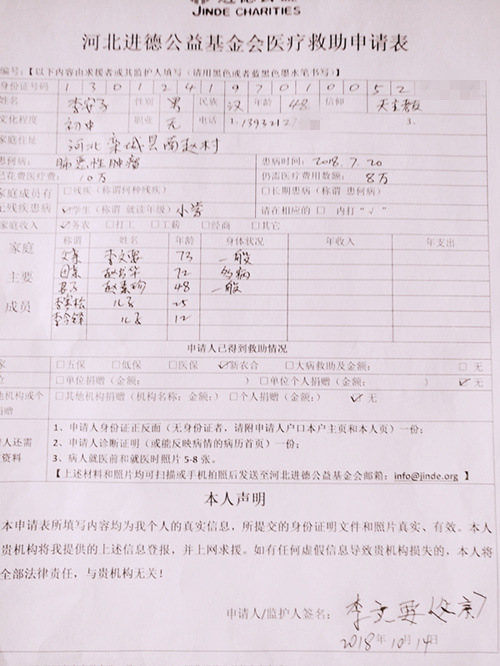 JINDE CHARITIES
河北进德公益基金会医疗救助申请表
编号：【以下内容由求援者或其监护人填写（请用黑色或者蓝黑色墨水笔书写）】
身份证号码 1 3 0 1 2 4 1 9 7 0 1 0 0 5 2
姓名 性别 男 民族 汉 年龄 48 信仰 天主教
文化程度 初中 职业 无 电话 1393212
家庭住址 河北栾城县南赵村
患何病： 脑恶性肿瘤 患病时间：2018.7.20
已花费医疗费： 10万 仍需医疗费用数额：8万
家庭成员有 □残疾（称谓何种残疾） □长期患病（称谓 患何病）
残疾患病 ☑学生（称谓 就读年级）小学 请在相应的 □ 内打“√”
家庭收入 ☑务农 □打工 □工薪 □经商 □其它
家庭主要成员 称谓 姓名 年龄 身体状况 年收入 年支出
父亲 李文要 73 一般
母亲 72 多病
妻子 48 一般
儿子 25
儿子 12
申请人已得到救助情况
家 □五保 □低保 □医保 ☑新农合 □大病救助及金额： □无
位 □单位捐赠（金额： ） □单位个人捐赠（金额： ） ☑无
他机构或个 □其他机构捐赠（机构名称：金额：） □个人捐赠（金额：） ☑无
捐赠
人还需 1、申请人身份证正反面（无身份证者，请附申请人户口本户主页和本人页）一份；
2、申请人诊断证明（或能反映病情的病历首页）一份；
资料 3、病人就医前和就医时照片 5-8 张。
【上述材料和照片均可扫描或手机拍照后发送至河北进德公益基金会邮箱：info@jinde.org 】
本人声明
本申请表所填写内容均为我个人的真实信息，所提交的身份证明文件和照片真实、有效。本人
贵机构将我提供的上述信息登报，并上网求援。如有任何虚假信息导致贵机构损失的，本人将
全部法律责任，与贵机构无关！
申请人/监护人签名： 李文要（父亲）
2018年10月14日